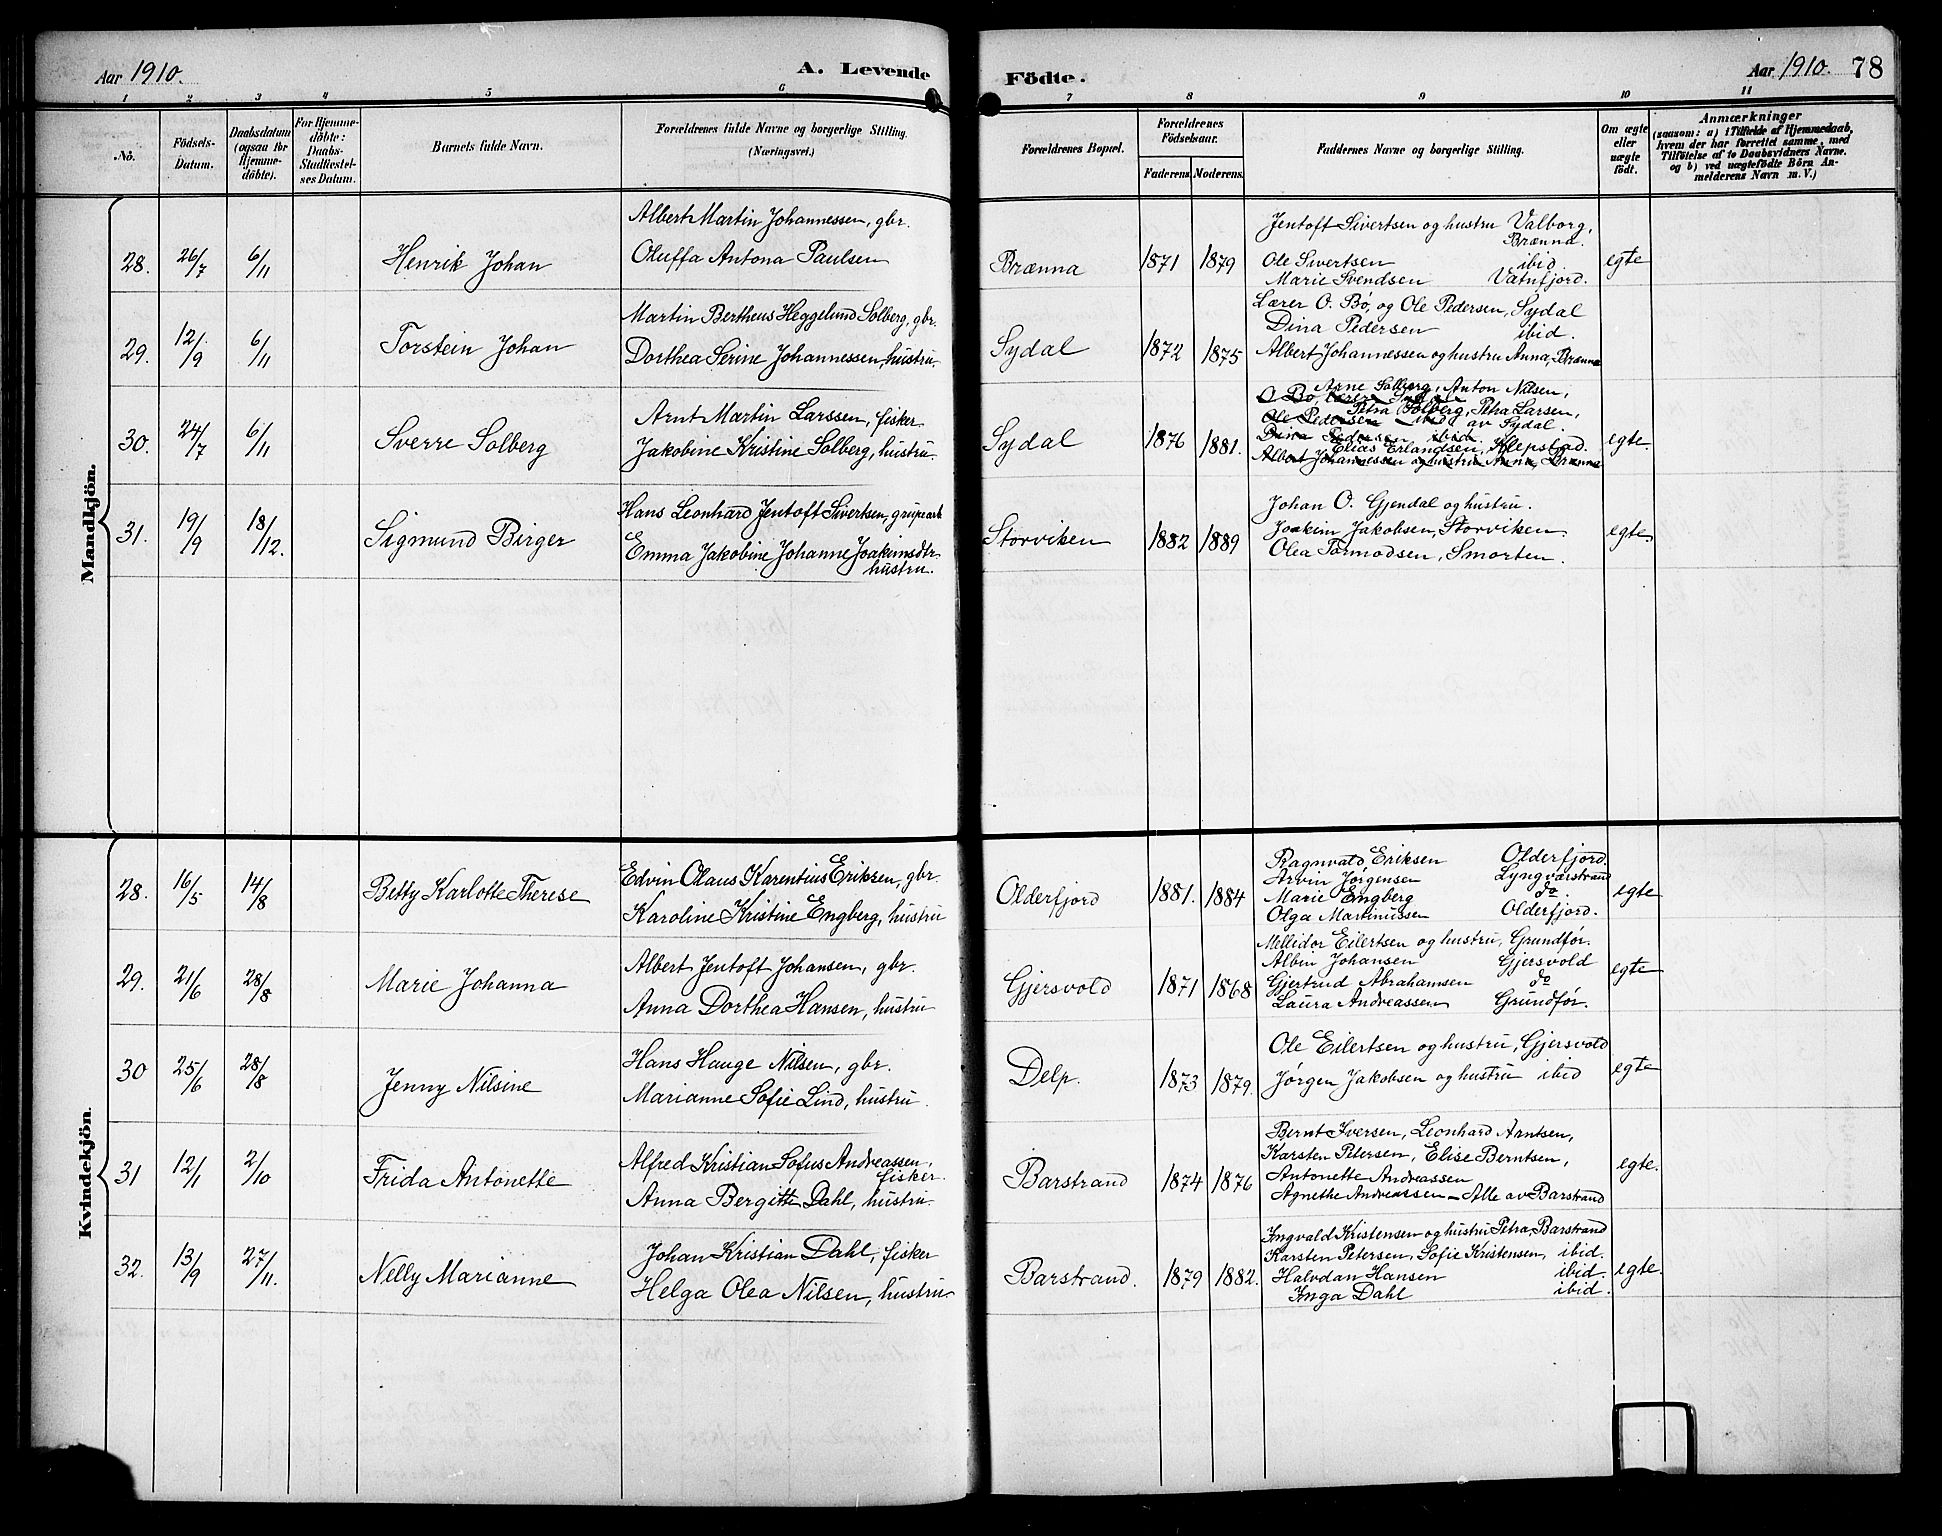 Aar 1910. A. Levende
Födte. Aar 1910. 78
1 2 3 4 5 6 7 8 9 10 11
No.
Födsels-Datum.
Daabsdatum (ogsaa for Hjemme-döbte).
For Hjemme-döbte: Daabs-Stadfæstel-ses Datum.
Barnets fulde Navn.
Forældrenes fulde Navne og borgerlige Stilling.
(Næringsvei.)
Forældrenes Bopæl.
Forældrenes Födselsaar.
Faderens Moderens.
Faddernes Navne og borgerlige Stilling.
Om ægte eller uægte födt.
Anmærkninger
(saasom: a) i Tilfælde af Hjemmedaab,
hvem der har forrettet samme, med
Tilföielse af to Daabsvidners Navne.
og b) ved uægtefödte Börn An-
melderens Navn m. V.)
Mandkjön.
28. 26/7 6/11 Henrik Johan
Albert Martin Johannessen, gbr.
Oluffa Antona Paulsen
Brænna 1871 1879
Jentoft Sivertsen og hustru Valborg,
Brænna.
Ole Sivertsen ibid
Marie Svendsen Vatnfjord.
egte
29. 12/9 6/11 Torstein Johan
Martin Bertheus Heggelund Solberg, gbr.
Dorthea Serine Johannessen, hustru.
Sydal 1872 1875
Lærer O. Bö, og Ole Pedersen, Sydal
Dina Pedersen ibid.
Albert Johannessen og hustru Anna, Brænna
30. 24/7 6/11 Sverre Solberg
Arnt Martin Larssen, fisker
Jakobine Kristine Solberg, hustru.
Sydal 1876 1881.
Arne Solberg, Anton Nilsen,
O Bö, Lærer Sydal
Petra Solberg, Petra Larsen,
Ole Pedersen ibid
av Sydal.
Dina Pedersen ibid.
Elias Erlandsen, Klepstad.
Albert Johannessen og hustru Anna, Brænna
egte.
31. 19/9 18/12. Sigmund Birger
Hans Leonhard Jentoft Sivertsen, grubearb
Emma Jakobine Johanne Joakimsdtr
hustru.
Storviken 1882 1889
Johan O. Gjendal og hustru.
Joakim Jakobsen, Storviken.
Olea Tormodsen, Smorten.
egte.
Kvindekjön.
28. 16/5 14/8 Betty Karlotte Therese
Edvin Olaus Karentius Eriksen, gbr.
Karoline Kristine Engberg, hustru
Olderfjord 1881. 1884
Ragnvald Eriksen Olderfjord.
Arvin Jørgensen Lyngværstrand
Marie Engberg do
Olga Martinussen Olderfjord.
egte
29. 21/6 28/8 Marie Johanna
Albert Jentoft Johansen, gbr.
Anna Dorthea Hansen, hustru
Gjersvold 1871 1868
Mellidor Eilertsen og hustru, Grundför.
Albin Johansen Gjersvold
Gjertrud Abrahamsen do
Laura Andreassen Grundför.
egte
30 25/6 28/8 Jenny Nilsine
Hans Hauge Nilsen, gbr.
Marianne Sofie Lind, hustru.
Delp. 1873 1879.
Ole Eilertsen og hustru, Gjersvold
Jørgen Jakobsen og hustru ibid
egte
31 12/1 2/10 Frida Antonette
Alfred Kristian Sofus Andreassen,
fisker.
Anna Bergitte Dahl, hustru.
Barstrand 1874 1876
Bernt Iversen, Leonhard Arntsen,
Karsten Petersen, Elise Berntsen,
Antonette Andreassen
Agnethe Andreassen - Alle av Barstrand
egte.
32. 13/9 27/11. Nelly Marianne
Johan Kristian Dahl, fisker
Helga Olea Nilsen, hustru
Barstrand. 1879 1882.
Ingvald Kristensen og hustru Petra, Barstrand
Karsten Petersen, Sofie Kristensen, ibid.
Halvdan Hansen ibid.
Inga Dahl ibid.
egte.